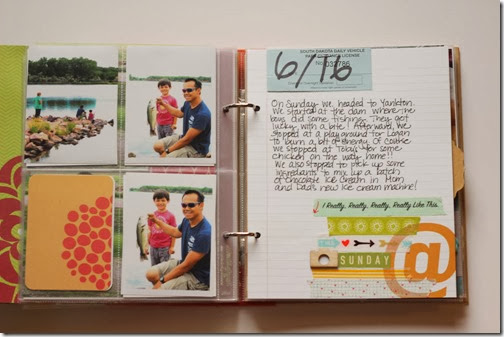 SOUTH DAKOTA DAILY VEHICLE
PARK ENTRANCE LICENSE
No. 032786
6/16
On Sunday we headed to Yankton.
We started at the dam where the
boys did some fishing. They got
lucky with a bite! Afterward, we
stopped at a playground for Logan
to burn a bit of energy. Of course
we stopped at Toby's for some
chicken on the way home!!
We also stopped to pick up some
ingredients to mix up a batch
of chocolate ice cream in Mom
and Dad's new ice cream machine!
I Really, Really, Really, Really Like This.
SUNDAY
@